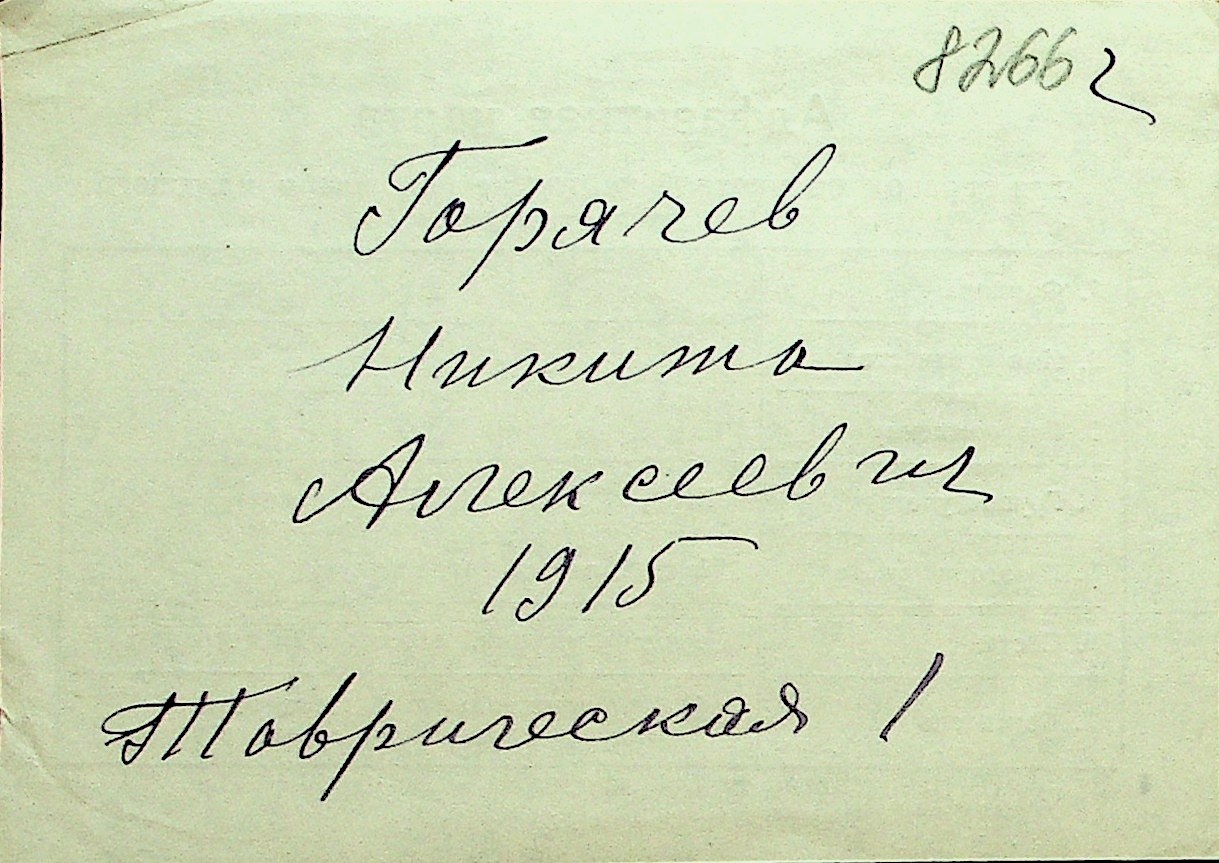 8266 г
Горячев
Никита
Алексеевич
1915
Таврическая 1